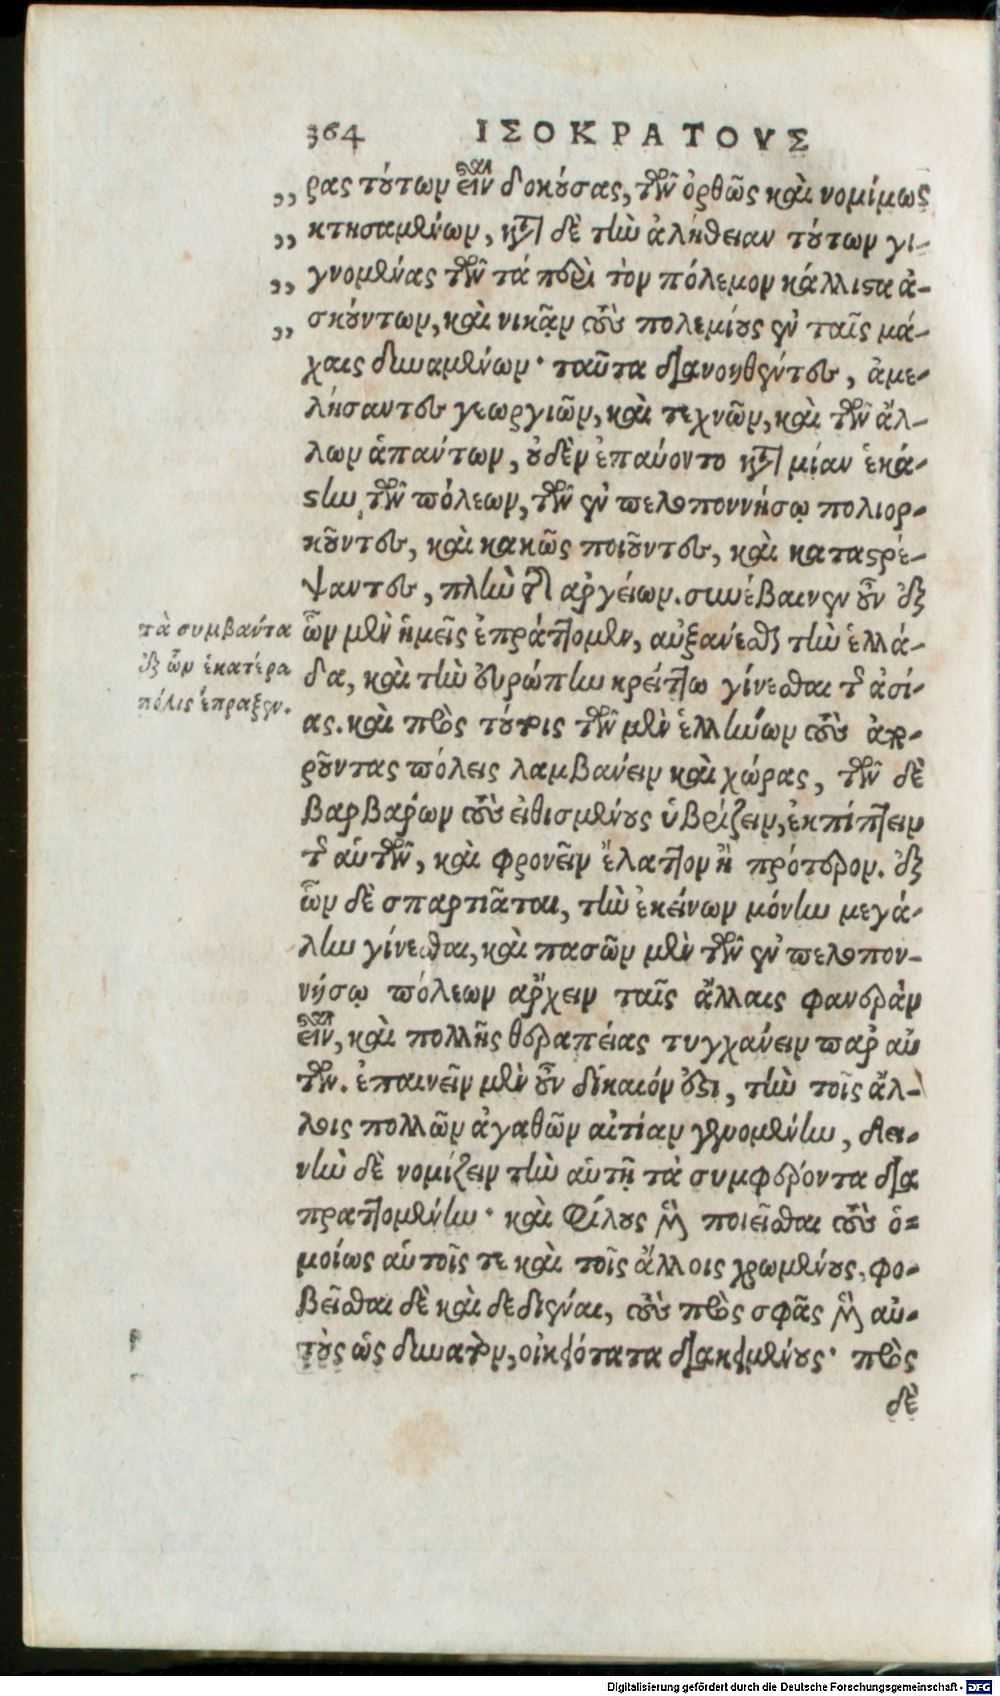 364 ΙΣΟΚΡΑΤΟΥΣ
,, ρας τούτων εἶναι δοκούσας, τῶν ὀρθῶς καὶ νομίμως
,, κτησαμένων, κατὰ δὲ τὴν ἀλήθειαν τούτων γι-
,, γνομένας τῶν τὰ περὶ τὸν πόλεμον κάλλιστα ἀ-
,, σκούντων, καὶ νικᾷν τοὺς πολεμίους ἐν ταῖς μά-
χαις δυναμένων· ταῦτα διανοηθέντες, ἀμε-
λήσαντες γεωργιῶν, καὶ τεχνῶν, καὶ τῶν ἄλ-
λων ἁπάντων, οὐδὲν ἐπαύοντο κατὰ μίαν ἑκά-
στην τῶν πόλεων, τῶν ἐν πελοποννήσῳ πολιορ-
κοῦντες, καὶ κακῶς ποιοῦντες, καὶ καταστρέ-
ψαντες, πλὴν τῆς ἀργείων. συνέβαινεν οὖν ἐξ
τὰ συμβαίντα
ἐξ ὧν ἑκατέρα
πόλις ἔπραξεν.
ὧν μὲν ἡμεῖς ἐπράττομεν, αὐξάνεσθαι τὴν ἑλλά-
δα, καὶ τὴν εὐρώπην κρείττω γίνεσθαι τῆς ἀσί-
ας. καὶ πρὸς τούτοις τῶν μὲν ἑλλήνων τοὺς ἀπο-
ροῦντας πόλεις λαμβάνειν καὶ χώρας, τῶν δὲ
βαρβάρων τοὺς εἰθισμένους ὑβρίζειν, ἐκπίπτειν
τῆς αὑτῶν, καὶ φρονεῖν ἔλαττον ἢ πρότερον. ἐξ
ὧν δὲ σπαρτιᾶται, τὴν ἐκείνων μόνην μεγά-
λην γίνεσθαι, καὶ πασῶν μὲν τῶν ἐν πελοπον-
νήσῳ πόλεων ἄρχειν ταῖς ἄλλαις φανερὰν
εἶναι, καὶ πολλῆς θεραπείας τυγχάνειν παρ αὐ
τῶν. ἐπαινεῖν μὲν οὖν δίκαιόν ἐστι, τὴν τοῖς ἄλ-
λοις πολλῶν ἀγαθῶν αἰτίαν γενομένην, δει-
νὴν δὲ νομίζειν τὴν αὑτῇ τὰ συμφέροντα δια
πραττομένην· καὶ φίλους μὲν ποιεῖσθαι τοὺς ὁ-
μοίως αὑτοῖς τε καὶ τοῖς ἄλλοις χρωμένους, φο-
βεῖσθαι δὲ καὶ δεδιέναι, τοὺς πρὸς σφᾶς μὲν αὐ-
τοὺς ὡς δυνατὸν, οἰκειότατα διακειμένους· πρὸς
δὲ
Digitalisierung gefördert durch die Deutsche Forschungsgemeinschaft - DFG